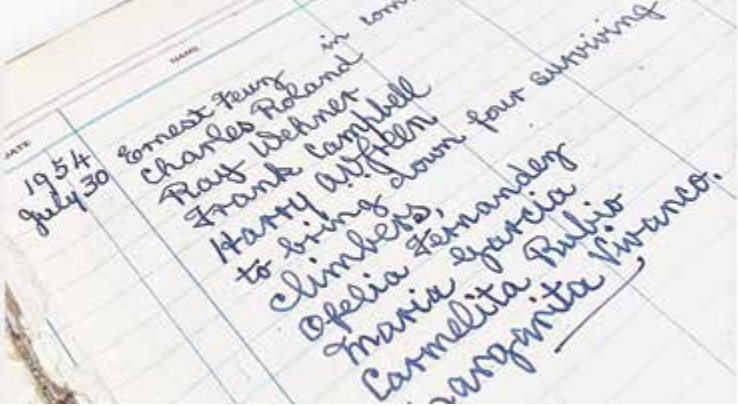 NAME
1954
July 30
Ernest Feuz in
Charles Roland
Ray Wehner
Frank Campbell
Harry
to bring down four surviving
climbers,
Ofelia Fernandez
Maria Garcia
Carmelita Rubio
Margarita Vivanco.